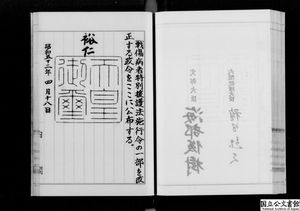 戦傷病者特別援護法施行令の一部を改
正する政令をここに公布する。
裕仁
天皇
御璽
昭和五十二年四月十八日
内閣総理大臣
文部大臣
海部俊樹
国立公文書館
National Archives of Japan